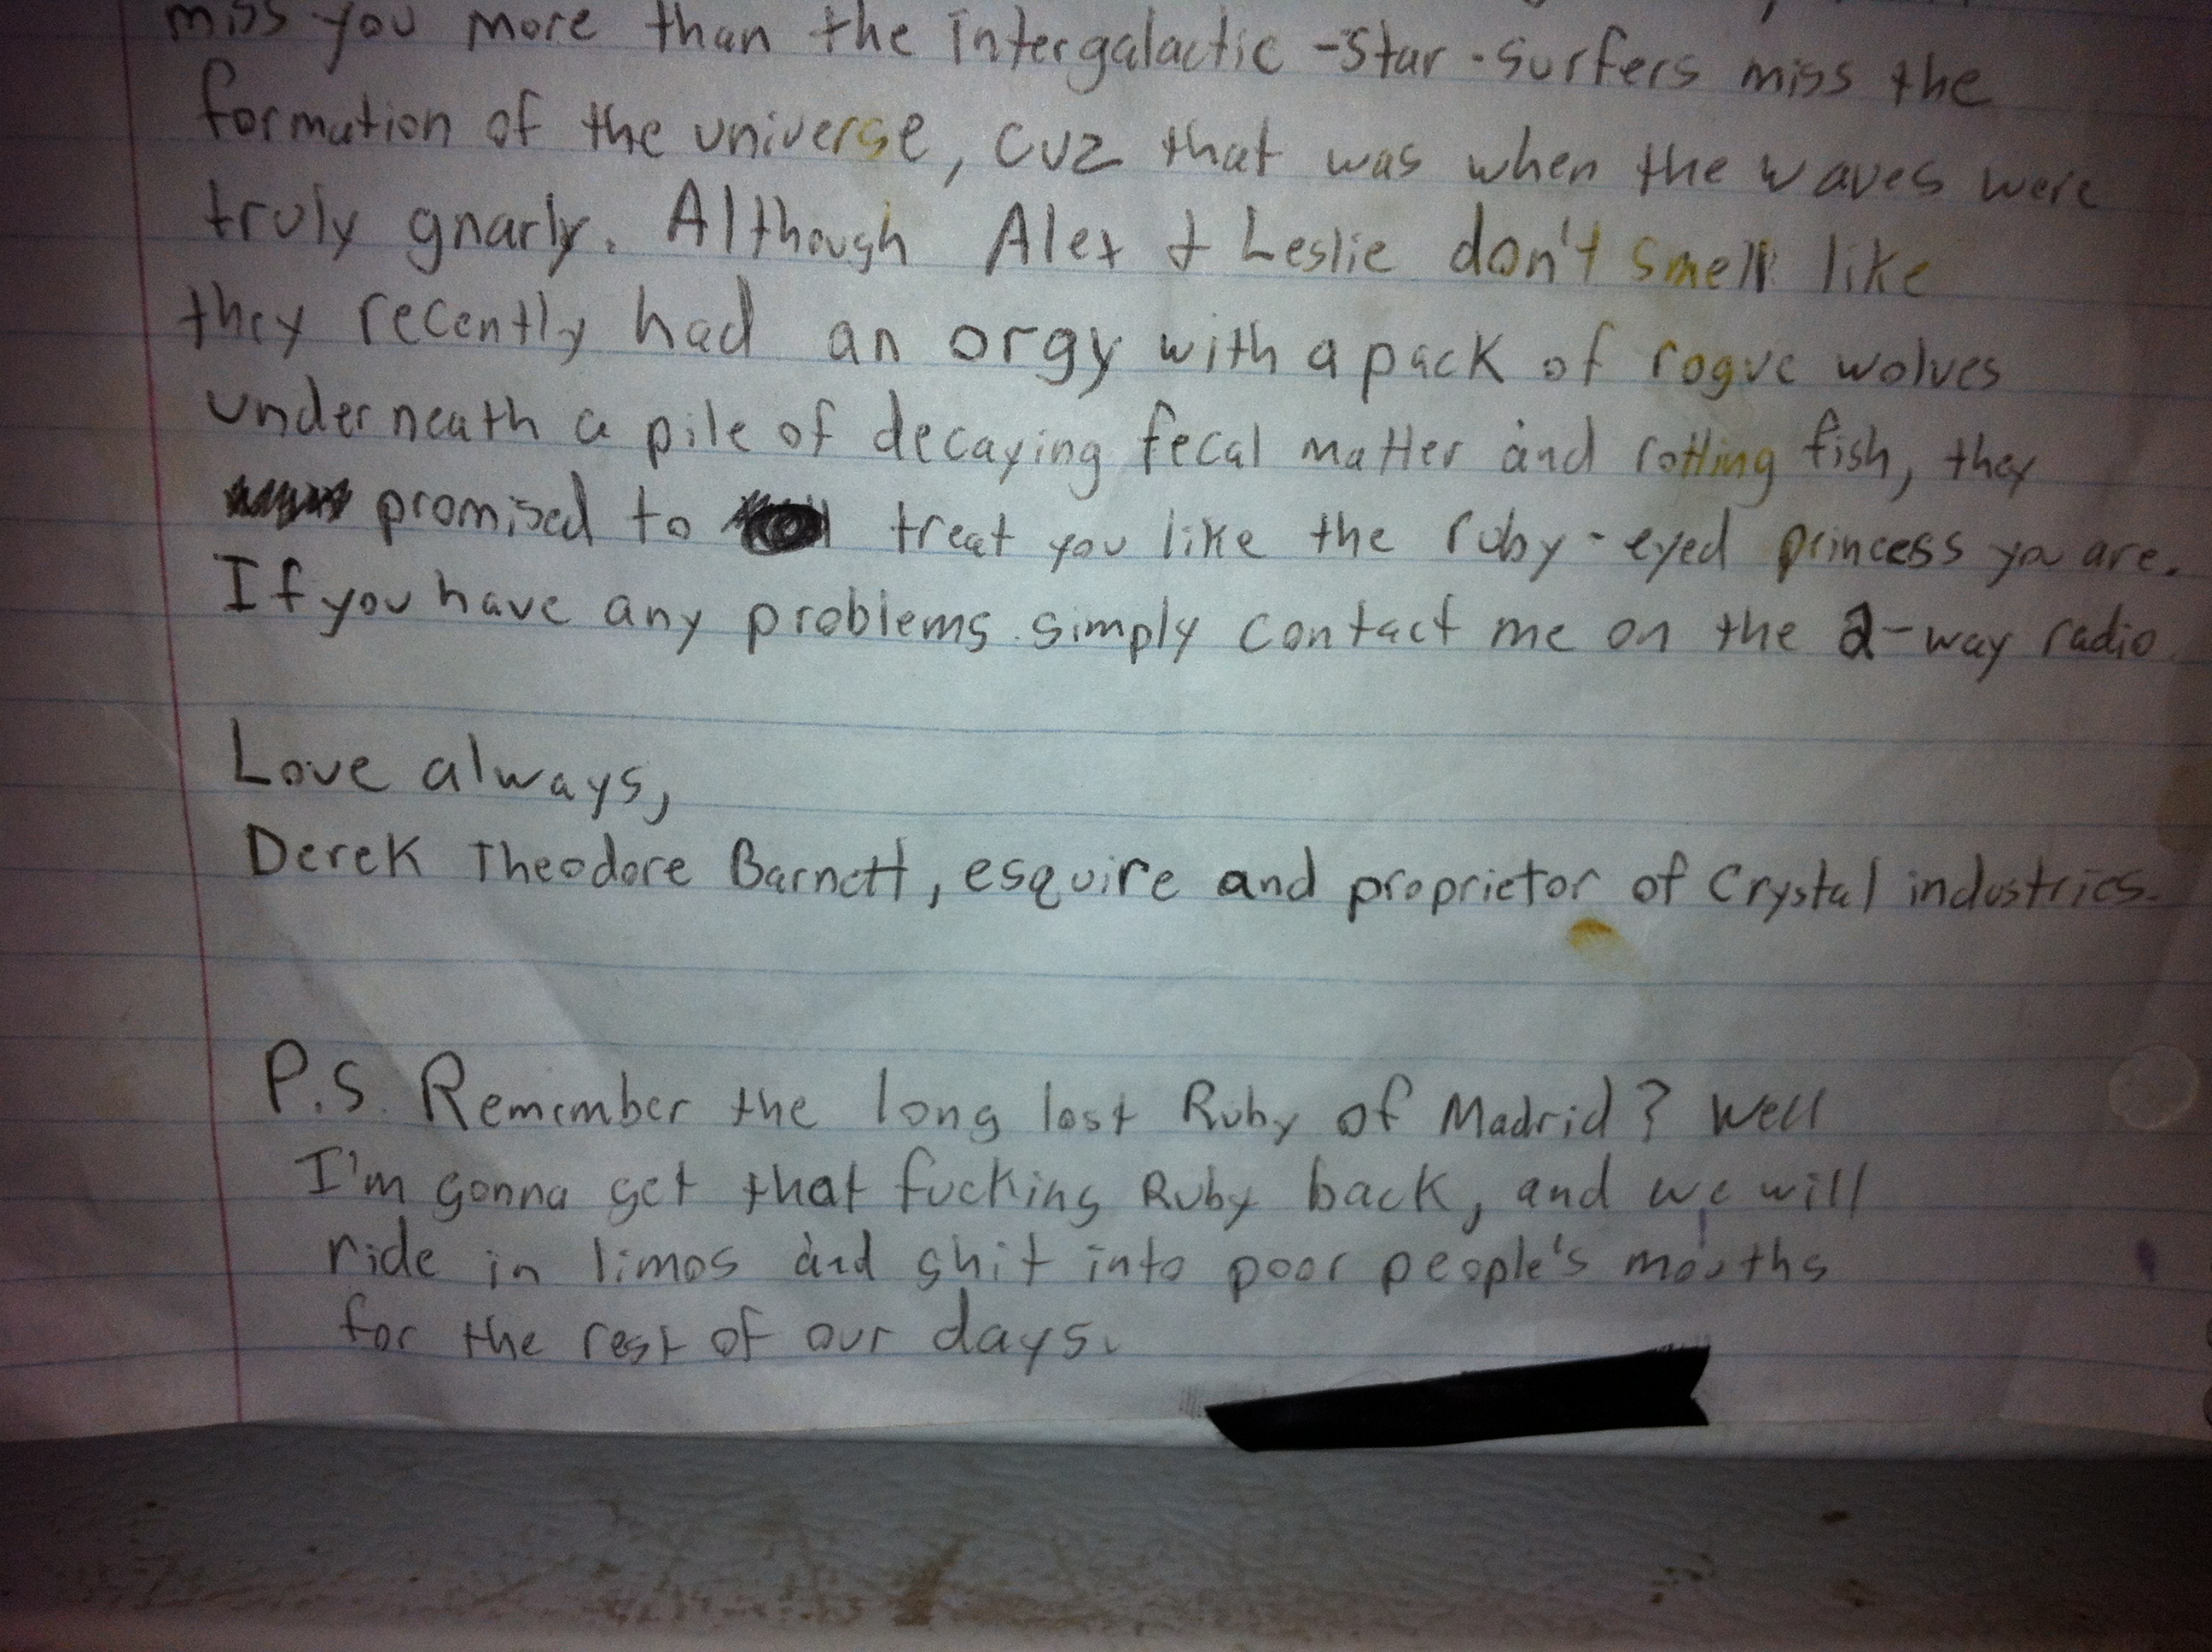 miss you more than the Intergalactic -Star-Surfers miss the
formation of the universe, cuz that was when the waves were
truly gnarly. Although Alex & Leslie don't smell like
they recently had an orgy with a pack of rogue wolves
underneath a pile of decaying fecal matter and rotting fish, they
promised to treat you like the ruby-eyed princess you are.
If you have any problems simply contact me on the 2-way radio.
Love always,
Derek Theodore Barnett, esquire and proprietor of Crystal industries.
P.S. Remember the long lost Ruby of Madrid? Well
I'm gonna get that fucking Ruby back, and we will
ride in limos and shit into poor people's mouths
for the rest of our days.